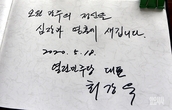 오월 민주의 정신을
심장과 영혼에 새깁니다.
2020. 5. 18.
열린민주당 대표
최강욱